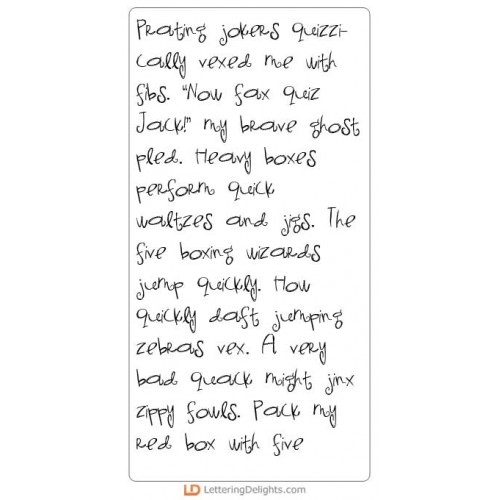 Prating jokers quizzi-
cally vexed me with
fibs. "Now fax quiz
Jack!" my brave ghost
pled. Heavy boxes
perform quick
waltzes and jigs. The
five boxing wizards
jump quickly. How
quickly daft jumping
zebras vex. A very
bad quack might jinx
zippy fowls. Pack my
red box with five
LD LetteringDelights.com